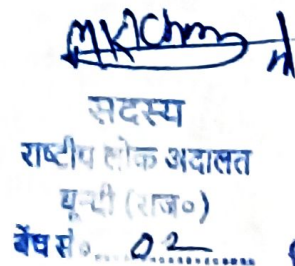 सदस्य
राष्टीय लोक अदालत
बून्दी (राज०)
बेंच सं० 02